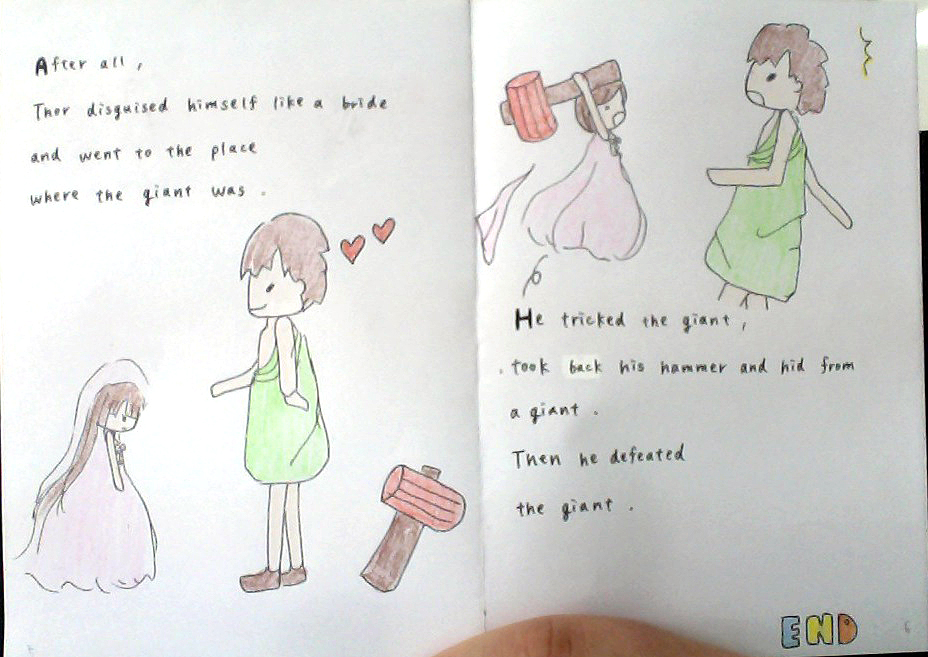 After all,
Thor disguised himself like a bride
and went to the place
where the giant was.
He tricked the giant,
took back his hammer and hid from
a giant.
Then he defeated
the giant.
END
6